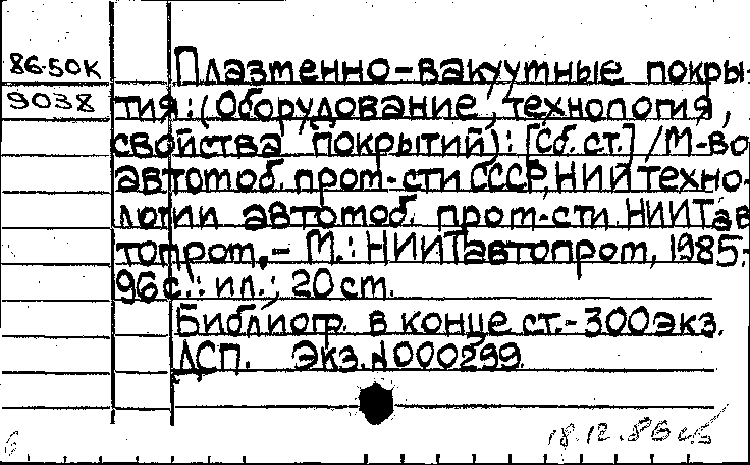 86-50К Плазменно-вакуумные покры-
9038 тия: (Оборудование, технология,
свойства покрытий): [Сб. ст.] / М-во
автомоб. пром-сти СССР, НИИ техно-
логии автомоб. пром-сти НИИТав-
топром. - М.: НИИТавтопром, 1985.-
96 с.: ил.; 20 см.
Библиогр. в конце ст. - 300 экз.
ДСП. Экз. N 000299
18.12.86
6